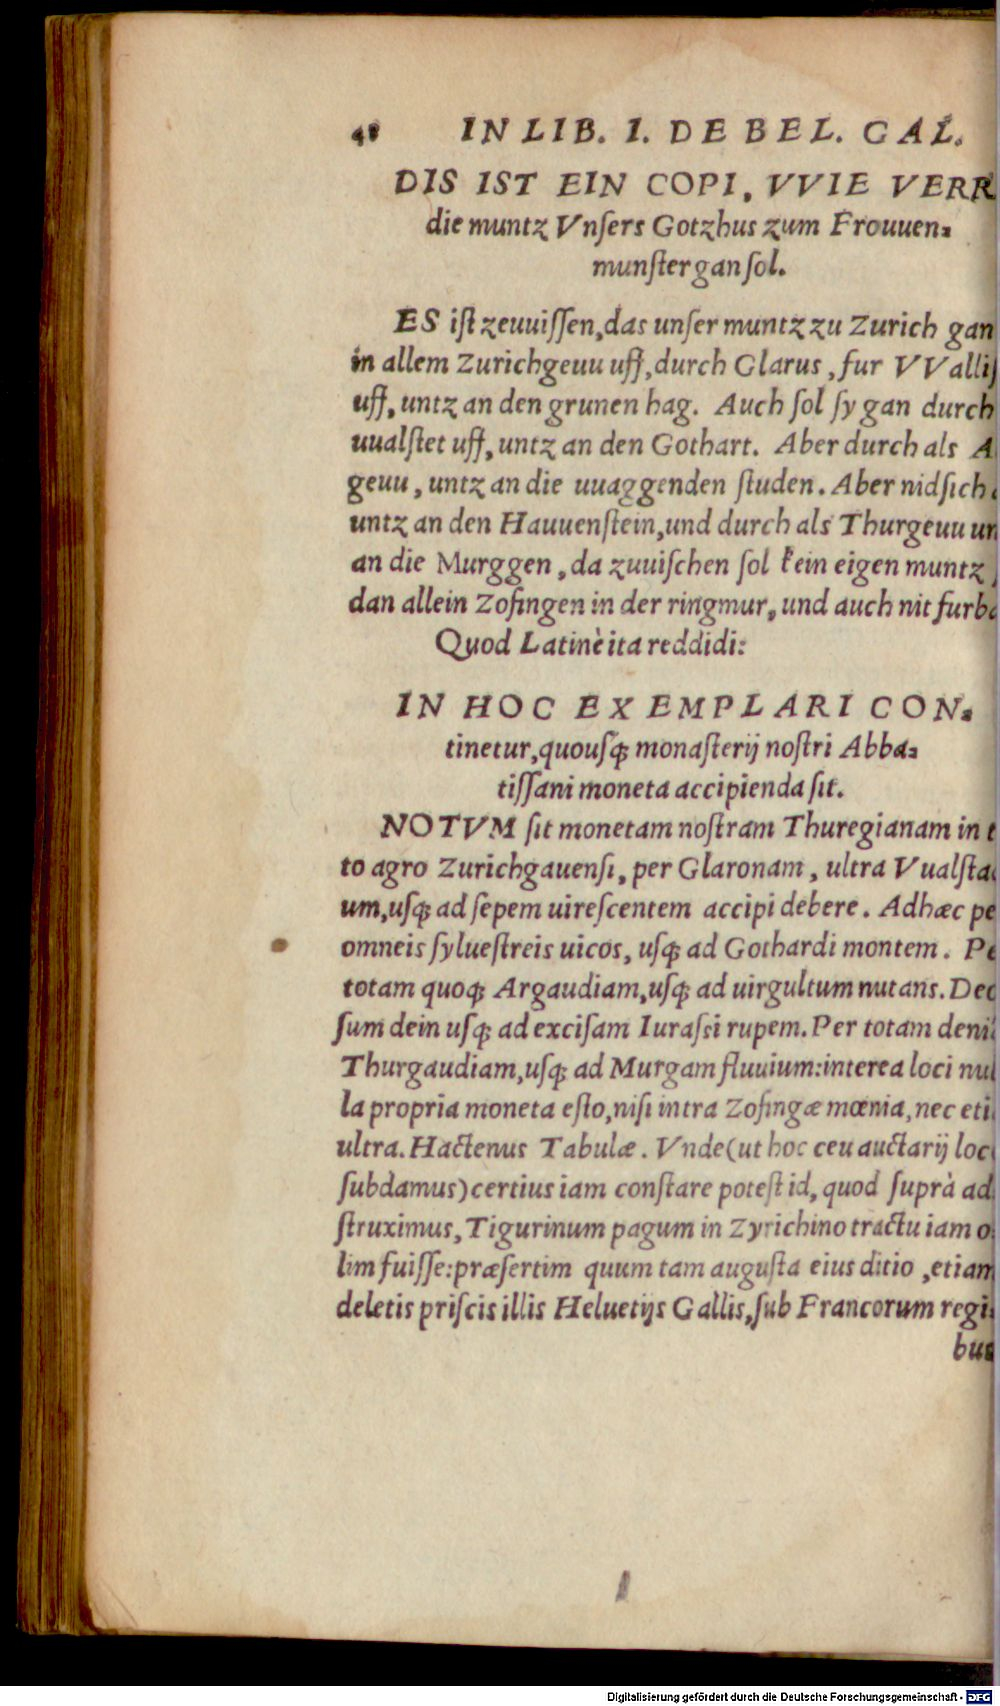 48 IN LIB. I. DE BEL. GAL.
DIS IST EIN COPI, VVIE VERR
die muntz Vnsers Gotzhus zum Frouuen⸗
munster gan sol.
ES ist zeuuissen, das unser muntz zu Zurich gan
in allem Zurichgeuu uff, durch Glarus, fur VVallis
uff, untz an den grunen hag. Auch sol sy gan durch
uualstet uff, untz an den Gothart. Aber durch als A
geuu, untz an die uuaggenden studen. Aber nidsich
untz an den Hauuenstein, und durch als Thurgeuu un
an die Murggen, da zuuischen sol kein eigen muntz
dan allein Zofingen in der ringmur, und auch nit furba
Quod Latinè ita reddidi:
IN HOC EXEMPLARI CON⸗
tinetur, quousq; monasterij nostri Abba⸗
tissani moneta accipienda sit.
NOTVM sit monetam nostram Thuregianam in t
to agro Zurichgauensi, per Glaronam, ultra Vualsta
um, usq; ad sepem uirescentem accipi debere. Adhæc pe
omneis syluestreis uicos, usq; ad Gothardi montem. Pe
totam quoq; Argaudiam, usq; ad uirgultum nutans. Deo
sum dein usq; ad excisam Iurassi rupem. Per totam deni
Thurgaudiam, usq; ad Murgam fluuium: interea loci nul
la propria moneta esto, nisi intra Zofingæ mœnia, nec eti
ultra. Hactenus Tabulæ. Vnde (ut hoc ceu auctarij loc
subdamus) certius iam constare potest id, quod suprà ad
struximus, Tigurinum pagum in Zyrichino tractu iam o
lim fuisse: præsertim quum tam augusta eius ditio, etiam
deletis priscis illis Heluetijs Gallis, sub Francorum regi
bus
Digitalisierung gefördert durch die Deutsche Forschungsgemeinschaft - DFG